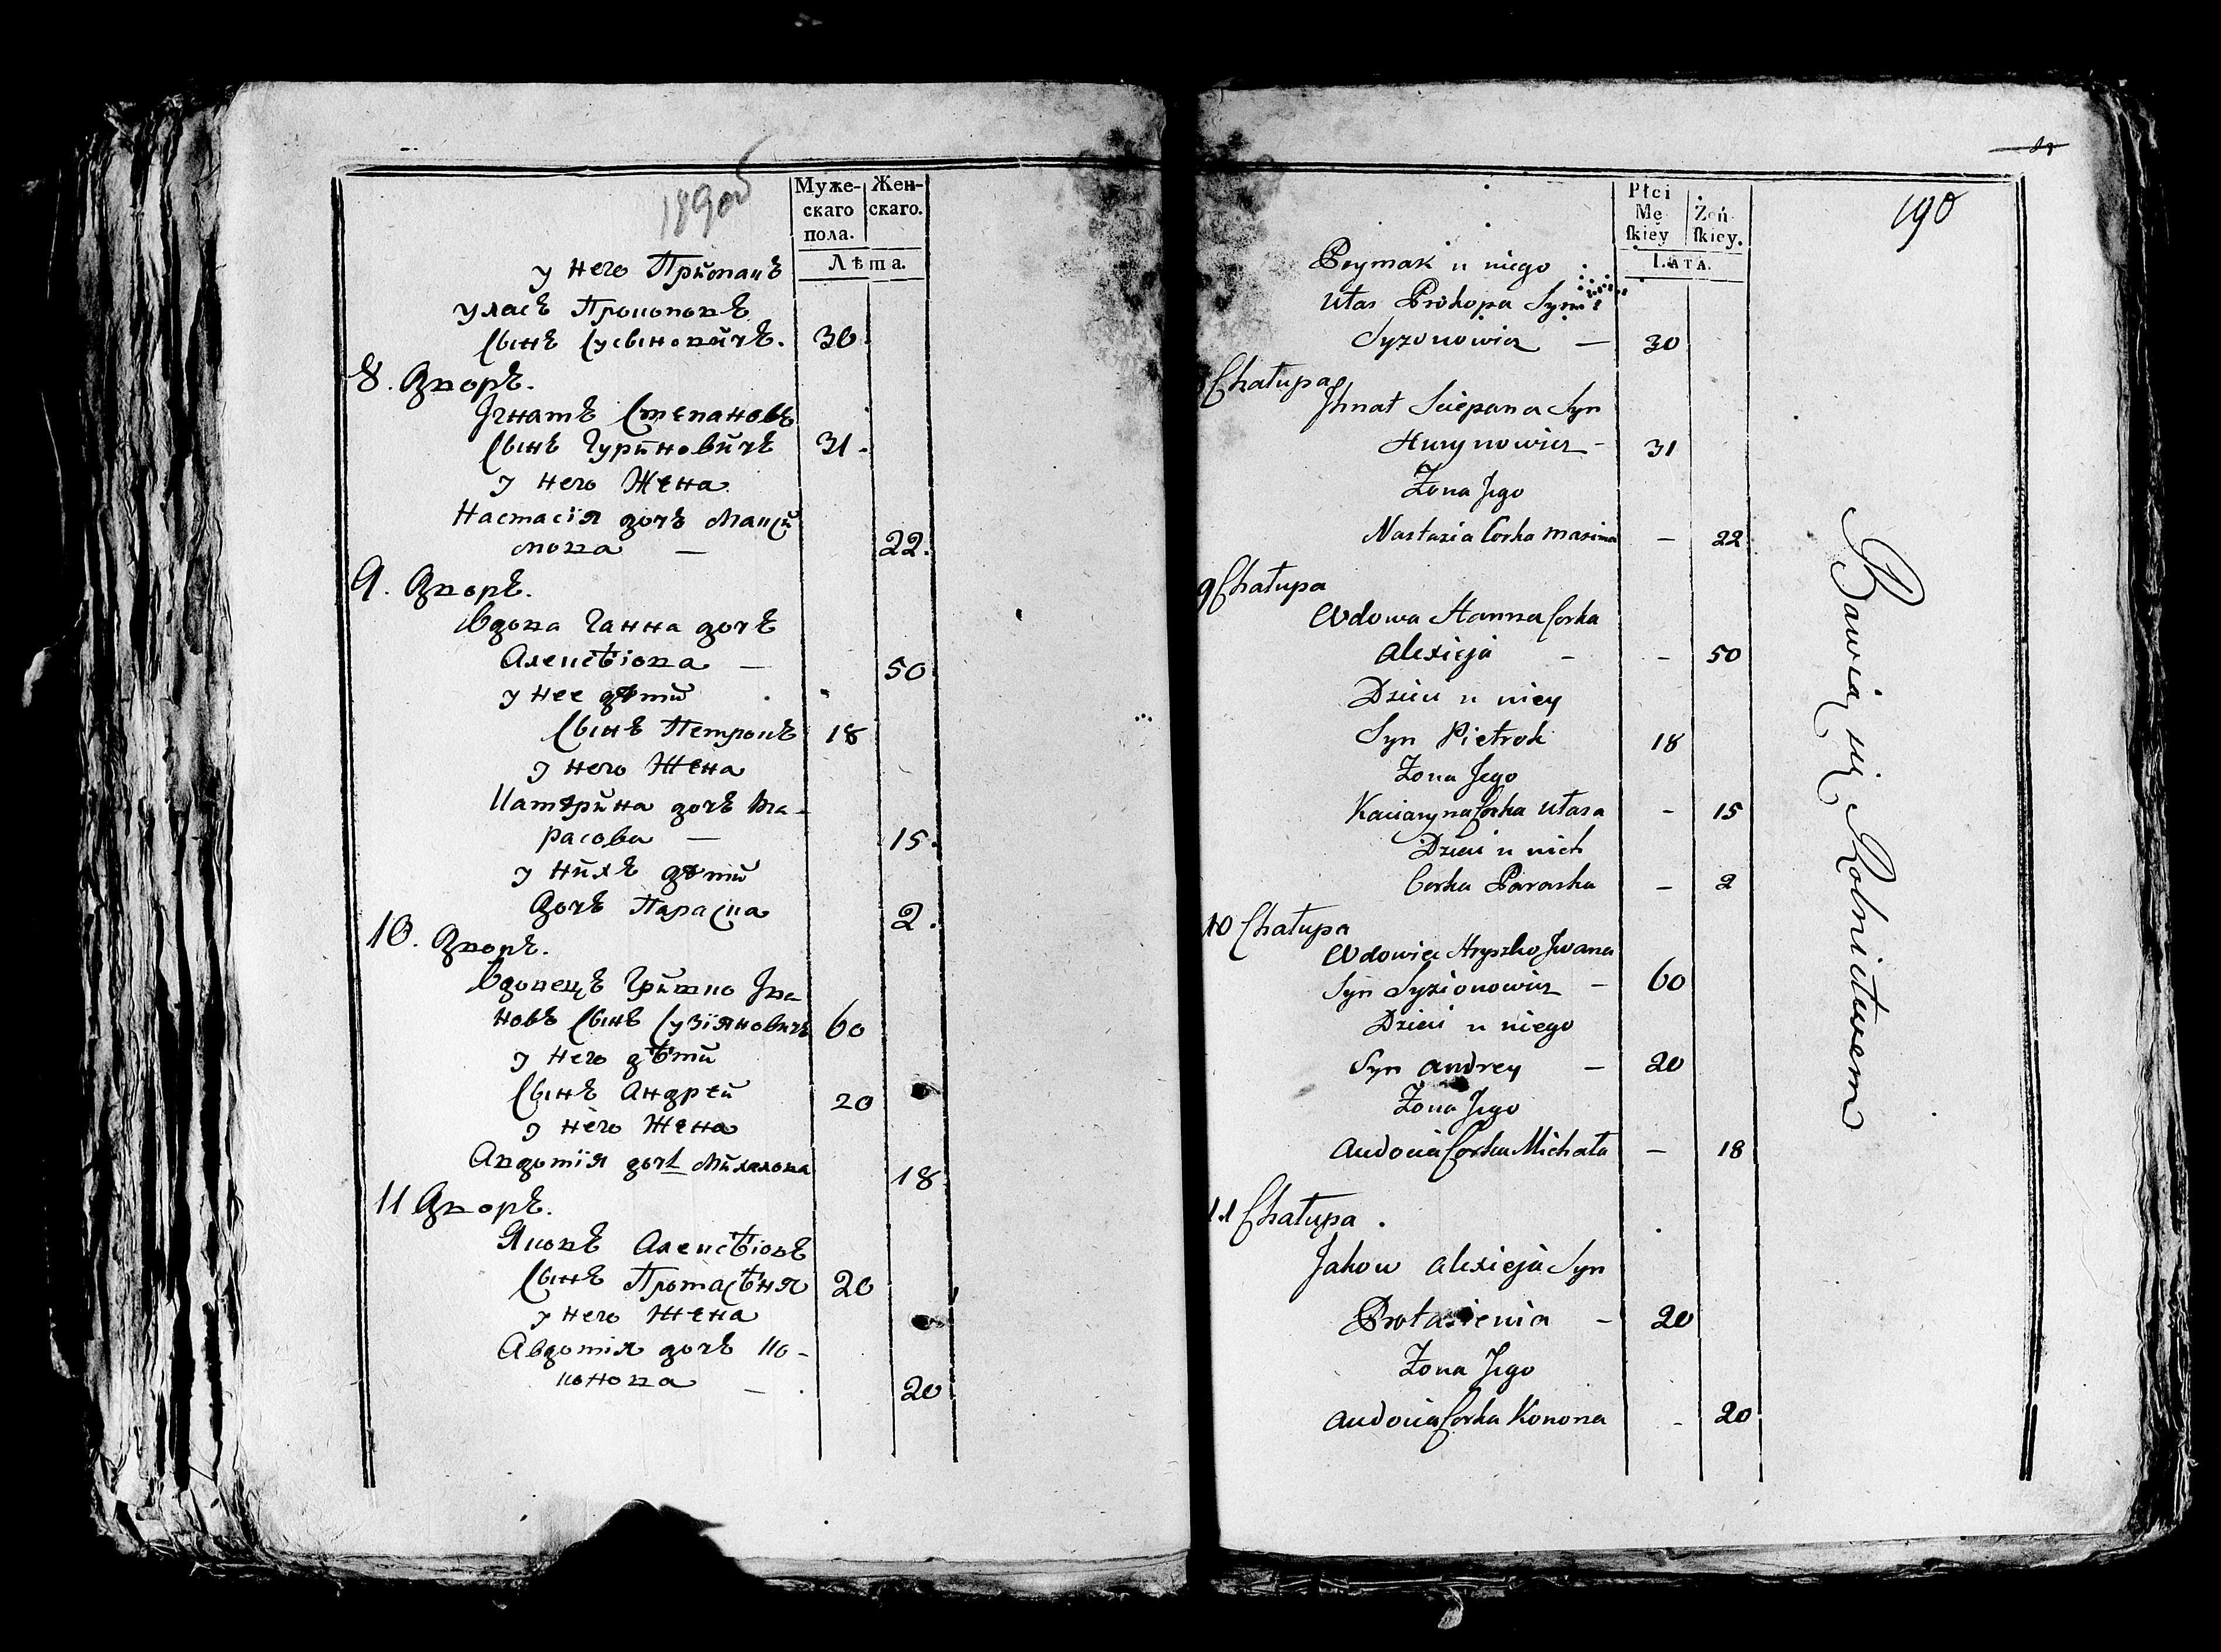 189об
Муже- Жен-
скаго скаго.
пола.
Лѣта.
у него Прймакъ
уласъ Прокоповъ
Сынъ Сусыновйчъ. 30
8. Дворъ.
Ігнатъ Степановъ
Сынъ Гурйновйчъ 31.
у него Жена
Настасія дочъ Максй
мова — 22.
9. Дворъ.
Вдова Ганна дочъ
Алексѣіова — 50
у нее дѣтй
Сынъ Петрокъ 18
у него Жена
Катерйна дочъ Та-
расова — 15.
у нйхъ дѣтй
Дочъ Параска 2.
10. Дворъ.
Вдовецъ Грйшко Іва
новъ Сынъ Сузіяновичъ 60
у него дѣтй
Сынъ Андрей 20
у него Жена
Авдотія дочь Мйхалова 18
11 Дворъ.
Яковъ Алексѣіовъ
Сынъ Протасѣня 20
у него Жена
Авдотія дочъ Ко-
конова — 20
190
Płci
Mę- Żeń-
skiey skiey.
LATA.
Prymak u niego
Ułas Prokopa Syn
Syzonowicz — 30
Chałupa
Jhnat Sciepana Syn
Hurynowicz - 31
Żona Jego
Nastazia Corka maxima — 22
9 Chałupa
Wdowa Hanna Corka
Alexieja - - 50
Dzieci u niey
Syn Pietrok 18
Żona Jego
Kaciaryna Corka Ułasa - 15
Dzieci u nich
Corka Paraska — 2
10 Chałupa
Wdowiec Hryszko Jwana
Syn Syzionowicz — 60
Dzieci u niego
Syn Andrey — 20
Żona Jego
Audocia Corka Michała — 18
11 Chałupa.
Jakow Alexieja Syn
Protasienia - 20
Żona Jego
Audocia Corka Konona - 20
Bawią się Rolnictwem